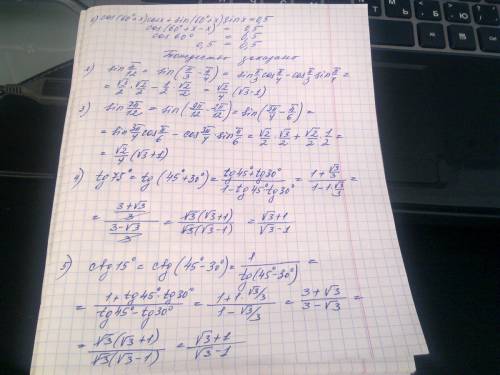 1) cos(60°+x)cosx+sin(60°+x)sinx=0,5
cos(60°+x-x) = 0,5
cos60° = 0,5
0,5 = 0,5
Тождество доказано
2) sin π/12 = sin(π/3 - π/4) = sin π/3 cos π/4 - cos π/3 sin π/4 =
= √3/2 · √2/2 - 1/2 · √2/2 = √2/4 (√3-1)
3) sin 7π/12 = sin(9π/12 - 2π/12) = sin(3π/4 - π/6) =
= sin 3π/4 cos π/6 - cos 3π/4 · sin π/6 = √2/2 · √3/2 + √2/2 · 1/2 =
= √2/4 (√3+1)
4) tg75° = tg(45°+30°) = (tg45°+tg30°)/(1-tg45°·tg30°) = (1+√3/3)/(1-1·√3/3) =
= ((3+√3)/3)/((3-√3)/3) = √3(√3+1)/√3(√3-1) = (√3+1)/(√3-1)
5) ctg15° = ctg(45°-30°) = 1/tg(45°-30°) =
= (1+tg45°·tg30°)/(tg45°-tg30°) = (1+1·√3/3)/(1-√3/3) = (3+√3)/(3-√3) =
= √3(√3+1)/√3(√3-1) = (√3+1)/(√3-1)